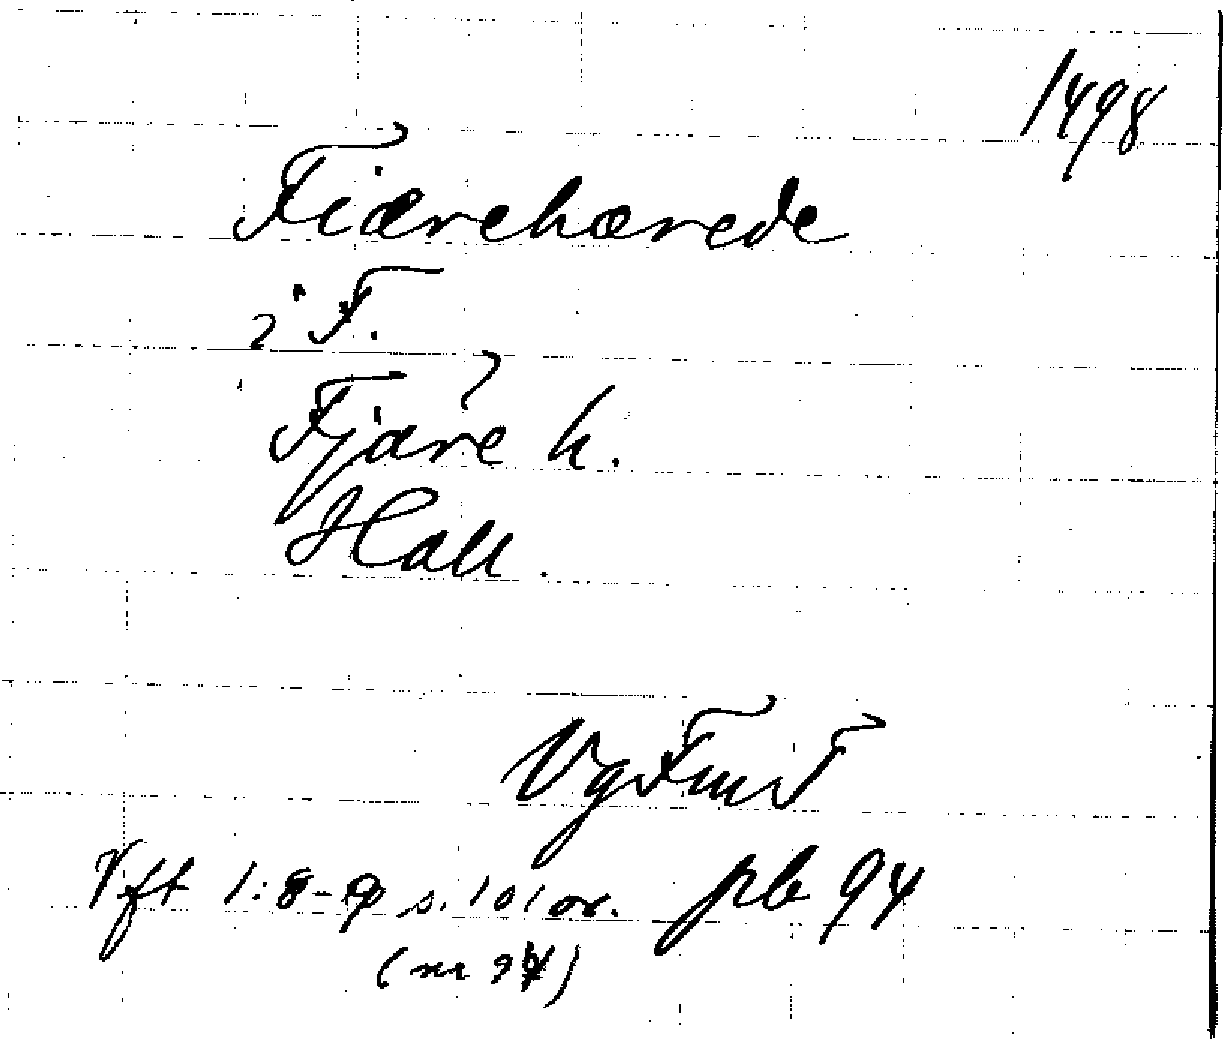 1498
Fiærehærede
i F.
Fjäre h.
Hall.
VgFmT
Vft 1:8-9 s. 101 or. pb 94
(nr 94)